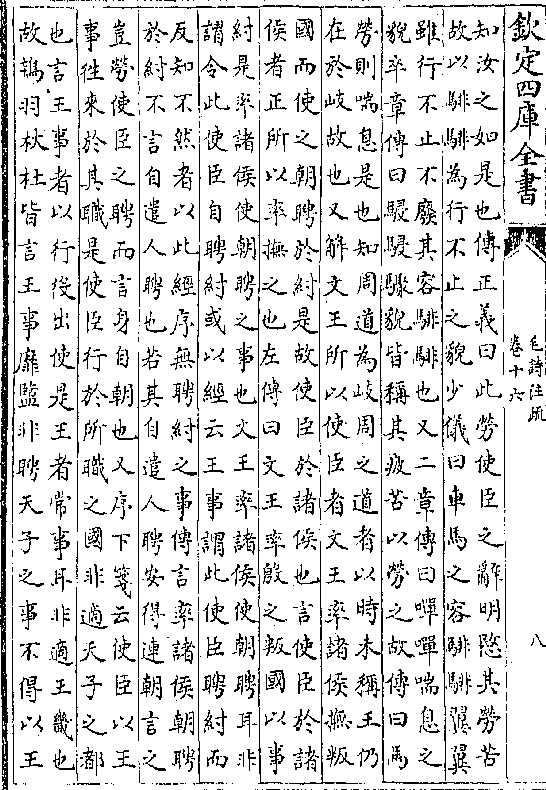 欽定四庫全書
毛詩注疏
卷十六
八
知汝之如是也傳正義曰此勞使臣之辭明愍其勞苦
故以騑騑為行不止之貌少儀曰車馬之容騑騑翼翼
雖行不止不廢其容騑騑也又二章傳曰嘽嘽喘息之
貌卒章傳曰駸駸驟貌皆稱其疲苦以勞之故傳曰馬
勞則喘息是也知周道為岐周之道者以時未稱王仍
在於岐故也又解文王所以使臣者文王率諸侯撫叛
國而使之朝聘於紂是故使臣於諸侯也言使臣於諸
侯者正所以率撫之也左傳曰文王率殷之叛國以事
紂是率諸侯使朝聘之事也文王率諸侯使朝聘耳非
謂令此使臣自聘紂或以經云王事謂此使臣聘紂而
反知不然者以此經序無聘紂之事傳言率諸侯朝聘
於紂不言自遣人聘也若其自遣人聘安得連朝言之
豈勞使臣之聘而言身自朝也又序下箋云使臣以王
事徃來於其職是使臣行於所職之國非適天子之都
也言王事者以行役出使是王者常事耳非適王畿也
故鴇羽杕杜皆言王事靡盬非聘天子之事不得以王